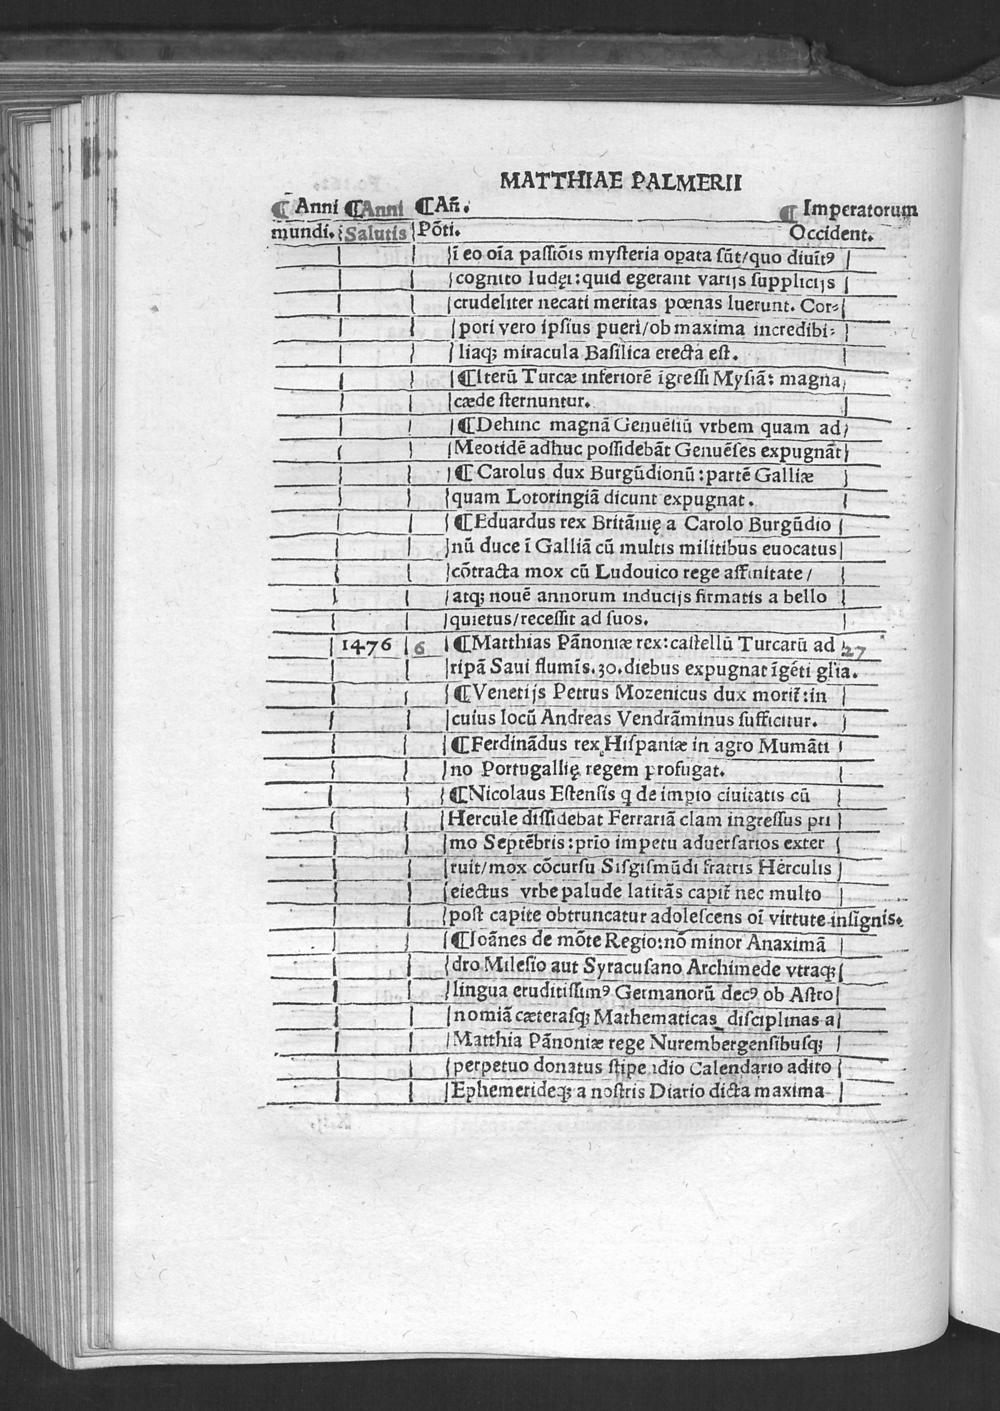 MATTHIAE PALMERII
¶ Anni ¶Anni ¶Añ. ¶ Imperatorum
mundi. Salutis Põti. Occident.
ĩ eo oĩa passiõis mysteria opata sũt/quo diuitꝰ
cognito Iudęi: quid egerant varijs supplicijs
crudeliter necati meritas pœnas luerunt. Cor⸗
pori vero ipsius pueri/ob maxima incredibi⸗
liaqꝫ miracula Basilica erecta est.
¶Iterũ Turcæ inferiorẽ ĩgressi Mysiã: magna
cæde sternuntur.
¶Dehinc magnã Genuẽsiũ vrbem quam ad
Meotidẽ adhuc possidebãt Genuẽses expugnãt
¶Carolus dux Burgũdionũ: partẽ Galliæ
quam Lotoringiã dicunt expugnat.
¶Eduardus rex Britãnię a Carolo Burgũdio
nũ duce ĩ Galliã cũ multis militibus euocatus
cõtracta mox cũ Ludouico rege affinitate/
atqꝫ nouẽ annorum inducijs firmatis a bello
quietus/recessit ad suos.
1476 6 ¶Matthias Pãnoniæ rex: castellũ Turcarũ ad 27
ripã Saui flumĩs .30. diebus expugnat ĩgẽti glĩa.
¶Venetijs Petrus Mozenicus dux morit̃: in
cuius locũ Andreas Vendrãminus sufficitur.
¶Ferdinãdus rex Hispaniæ in agro Mumãti
no Portugallię regem profugat.
¶Nicolaus Estensis q de impio ciuitatis cũ
Hercule dissidebat Ferrariã clam ingressus pri
mo Septẽbris: prĩo impetu aduersarios exter
ruit/mox cõcursu Sisgismũdi fratris Herculis
eiectus vrbe palude latitãs capit̃ nec multo
post capite obtruncatur adolescens oĩ virtute insignis.
¶Ioãnes de mõte Regio: nõ minor Anaximã
dro Milesio aut Syracusano Archimede vtraqꝫ
lingua eruditissimꝰ Germanorũ decꝰ ob Astro
nomiã cæterasqꝫ Mathematicas disciplinas a
Matthia Pãnoniæ rege Nurembergensibusqꝫ
perpetuo donatus stipendio Calendario adito
Ephemerideqꝫ a nostris Diario dicta maxima